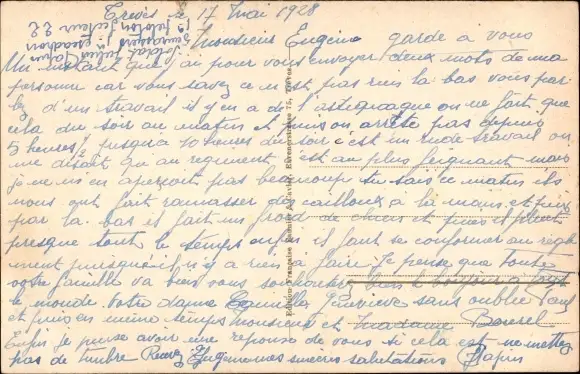 Trèves le 17 Mai 1928
Soldat Julien Papin
escadron
1er peloton Secteur 22
Monsieur Eugène garde a vous
Un instant que j'ai pour vous envoyer deux mots de ma
personne car vous savez ce n'est pas rien la bas vous par
lez d'un travail il y en a de l'astiquage on ne fait que
cela du soir au matin et puis on arrête pas depuis
5 heures jusqu'a 10 heures du soir c'est un rude travail on
me disait qu au regiment c'est au plus feignant mais
je ne m'en aperçoit pas beaucoup tu sais ce matin ils
nous ont fait ramasser des cailloux a la main et puis
par la bas il fait un froid de chien et puis il pleut
presque tout le temps enfin il faut se conformer au regle
ment puisqu'il n'y a rien a faire Je pense que toute
votre famille va bien vous souhaiterez bien le bonjour a tout
le monde votre dame Geneviève sans oublier Paul
et puis en même temps monsieur et madame Bourel
Enfin Je pense avoir une réponse de vous si cela est ne mettez
pas de timbre Recevez Eugene mes sincères salutations JPapin
Edition Française Trèves